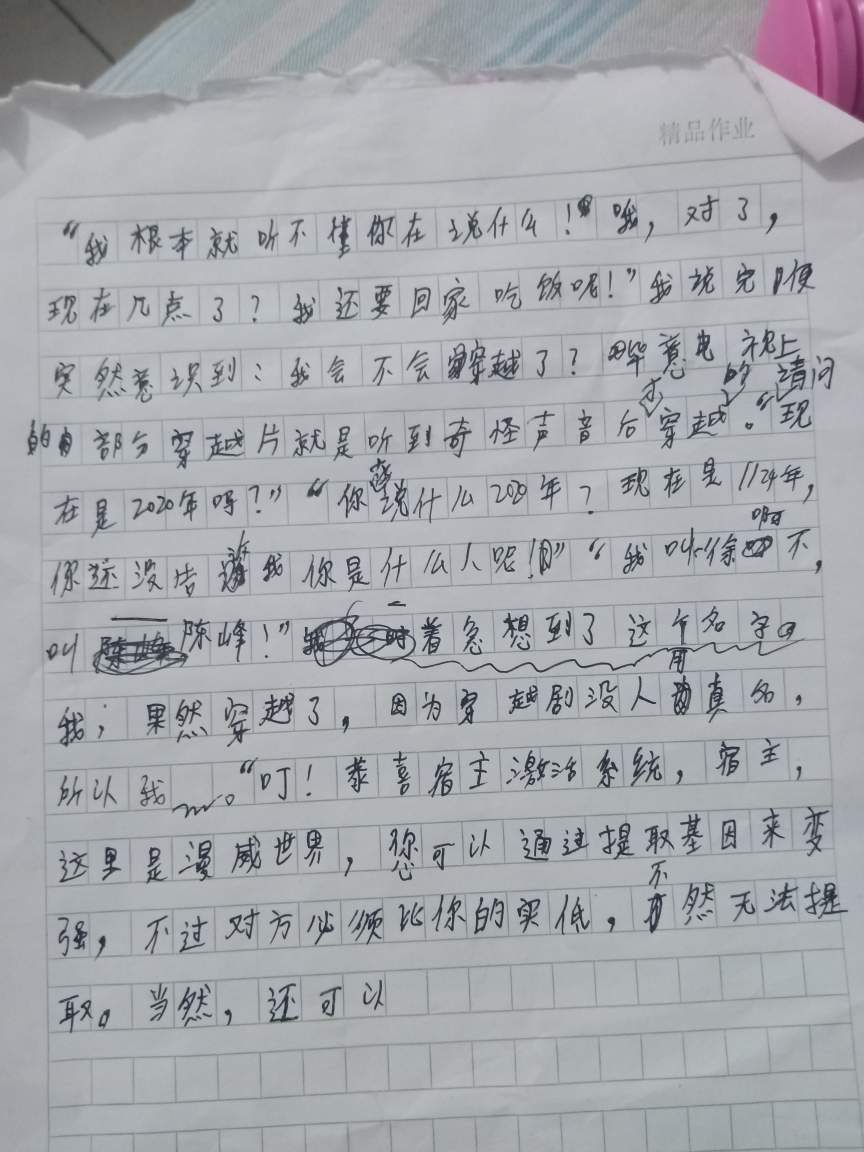 精品作业
“我根本就听不懂你在说什么！哦，对了，
现在几点了？我还要回家吃饭呢！”我说完便
突然意识到：我会不会穿越了？毕竟电视上
的部分穿越片就是听到奇怪声音后才穿越的。“请问现
在是2020年吗？”“你在说什么2020年？现在是1124年，
你还没告诉我你是什么人呢！”“我叫徐啊不，
叫陈峰！”着急想到了这个名字。
我；果然穿越了，因为穿越剧没人用真名，
所以我……。“叮！恭喜宿主激活系统，宿主，
这里是漫威世界，您可以通过提取基因来变
强，不过对方必须比你的实低，不然无法提
取。当然，还可以